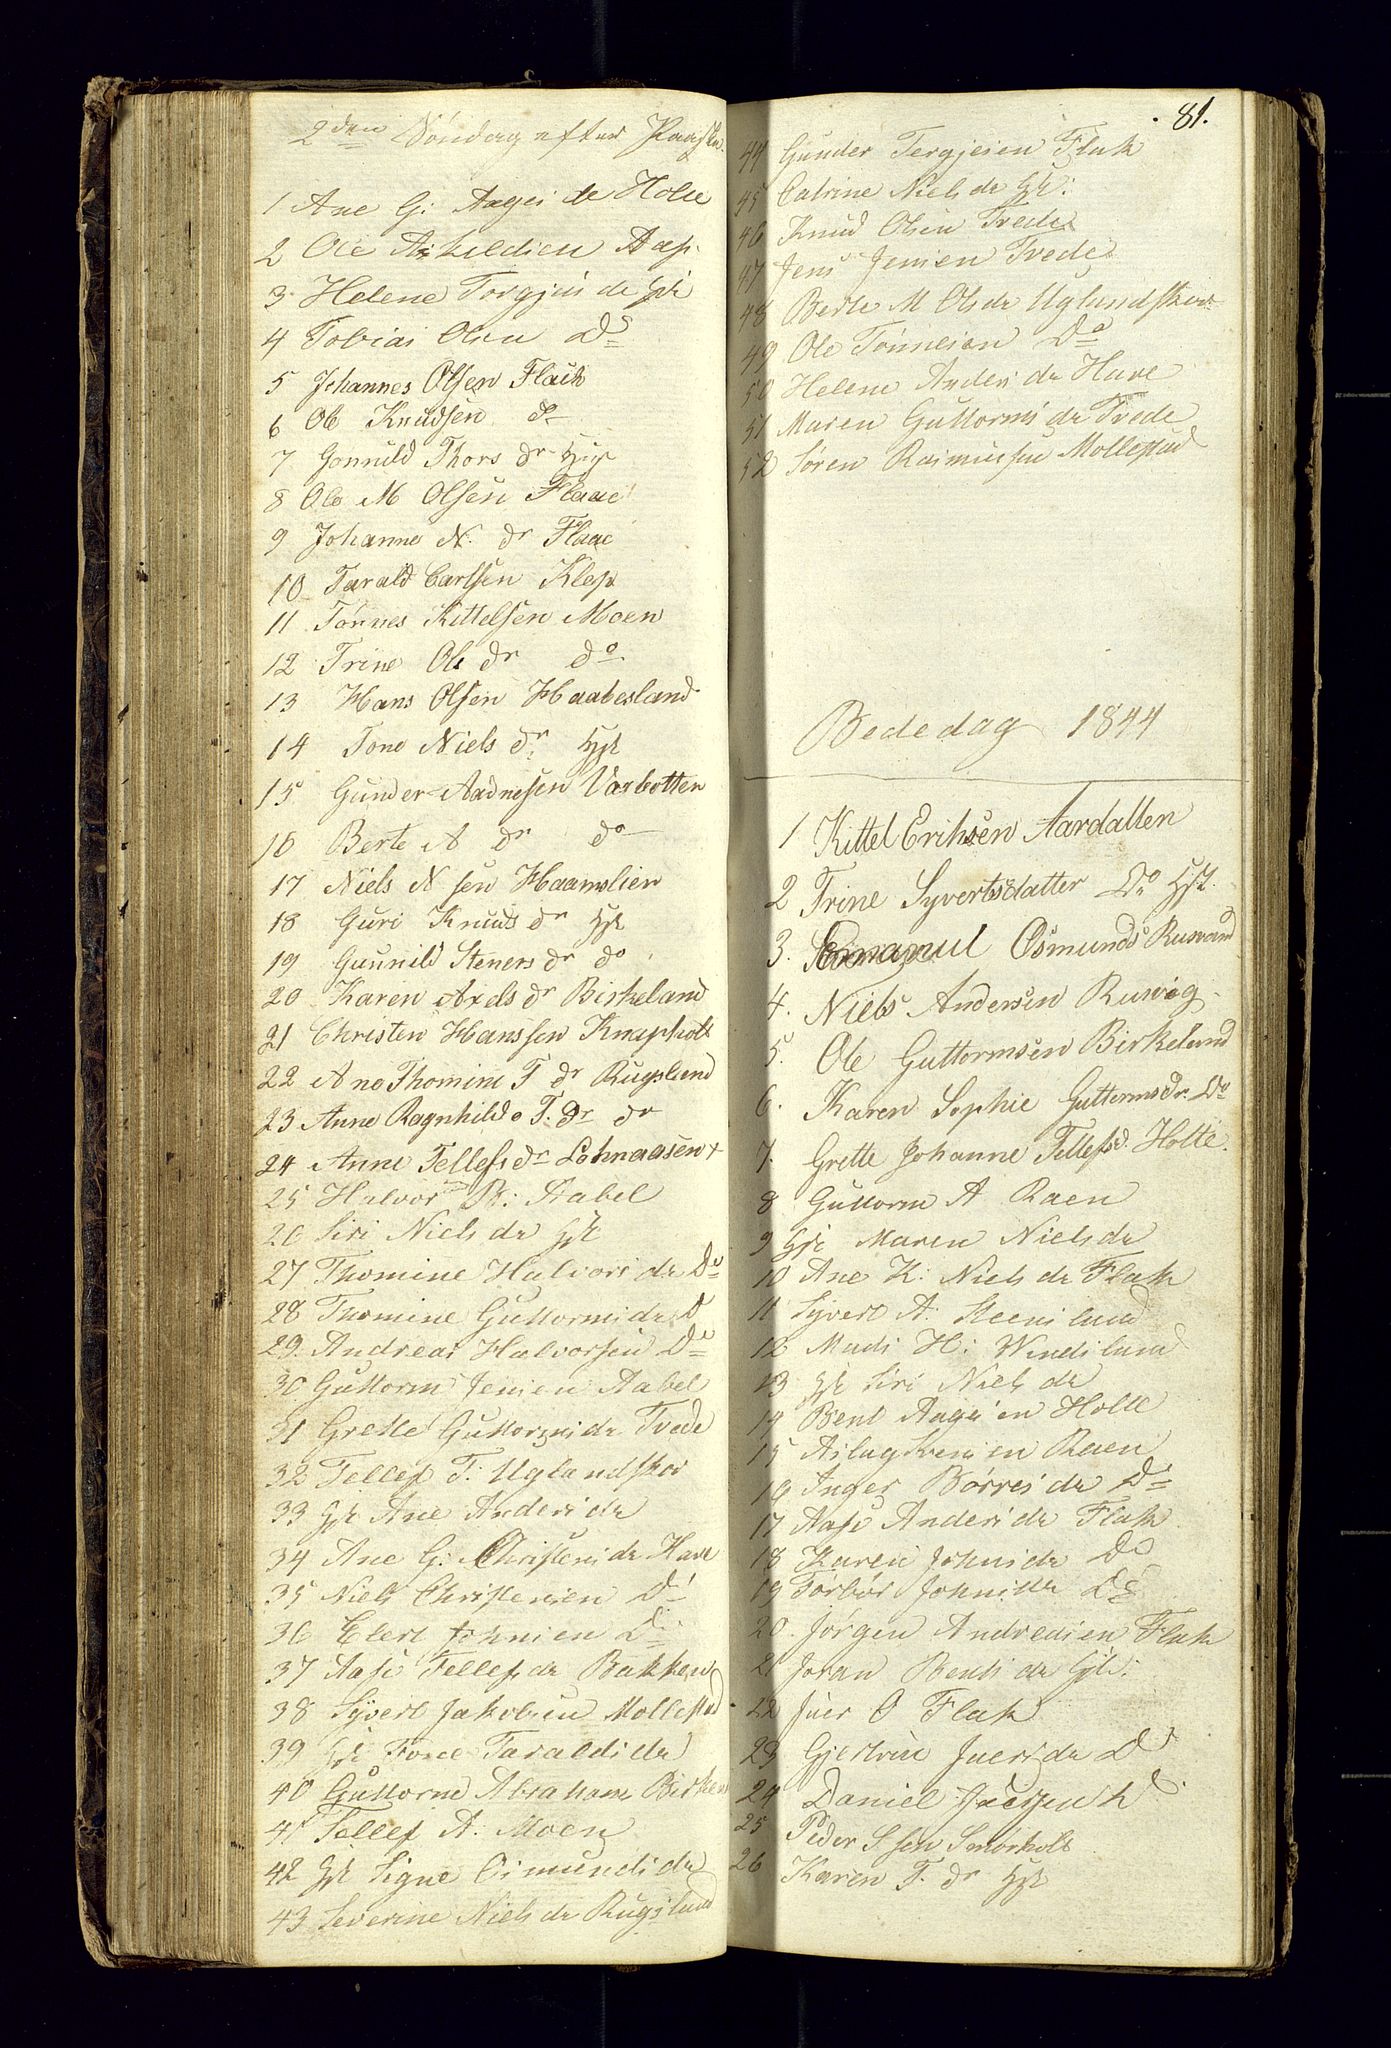 2den Søndag efter Paaske
1 Ane G: Aages dr Holte
2 Ole Askildsen Aas
3 Helene Torgjus dr Hst
4 Tobias Olsen Do
5 Johannes Olsen Flaak
6 Ole Knudsen do
7 Gonnild Thors dr Hst
8 Ole M Olsen Flaae
9 Johanne N. dr Flaae
10 Tarald Carlsen Klep
11 Tønnes Kittelsen Moen
12 Trine Ols dr do
13 Hans Olsen Haabesland
14 Tone Niels dr Hst
15 Gunder Aadnesen Vasbotten
16 Berte A dr do
17 Niels N sen Haanslien
18 Guri Knuds dr Hst
19 Gunnild Steners dr do
20 Karen Axels dr Birkeland
21 Christen Hanssen Knapholt
22 Ane Thomine T dr Rugslund
23 Anne Ragnhild T. dr do
24 Anne Tellefs dr Lohnaasen +
25 Halvor B: Aabel
26 Siri Niels dr Hst
27 Thomine Halvors dr Do
28 Thomine Guttorms dr D
29. Andreas Halvorsen Do
30 Guttorm Jensen Aabel
31 Grette Guttorms dr Tvede
32 Tellef T: Uglandskar
33 Hst Ane Anders dr
34 Ane G: Christens dr Have
35 Niels Christensen Do
36 Elert Johnsen Do
37 Aase Tellefs dr Bakken
38 Syvert Jakobsen Mollestad
39 Hst Tone Taralds dr
40 Guttorm Abraham Birken
41 Tellef A. Moen
42 Hst Signe Osmunds dr
43 Severine Niels dr Rugslund
81.
44 Gunder Tergjesen Flak
45 Catrine Niels dr Hst:
46 Knud Olsen Tvede
47 Jens Jensen Tvede
48 Berte M Ols dr Uglandskar
49 Ole Tønnesen Do
50 Helene Anders dr Have
51 Maren Guttorms dr Tvede
52 Søren Rasmussen Mollestad
Bededag 1844
1 Kittel Eriksen Aardallen
2 Trine Syvertsdatter Do Hst.
3. Emanuel Osmunds
4. Niels Andersen Ruvig
5. Ole Guttormsen Birkeland
6. Karen Sophie Guttormsdr. Do
7. Grette Johanne Tellefsd. Holte.
8 Guttorm A Raen
9 Hst Maren Niels dr
10 Ane K: Niels dr Flak
11 Syvert A: Steenslund
12 Mads H: Wendslund
13 Hst Siri Niels dr
14 Bent Aagesen Holte
15 Aslag Svensen Raen
16 Inger Børres dr Do
17 Aase Anders dr Flak
18 Karen Johns dr Do
19 Torbor Johns dr Do
20. Jørgen Andresen Flak
21 Joran Bents dr Hst:
22 Juer O Flak
23 Gjertrue Juers dr Do
24 Daniel Juersen
25 Peder S sen Smørholt
26 Karen T. dr Hst